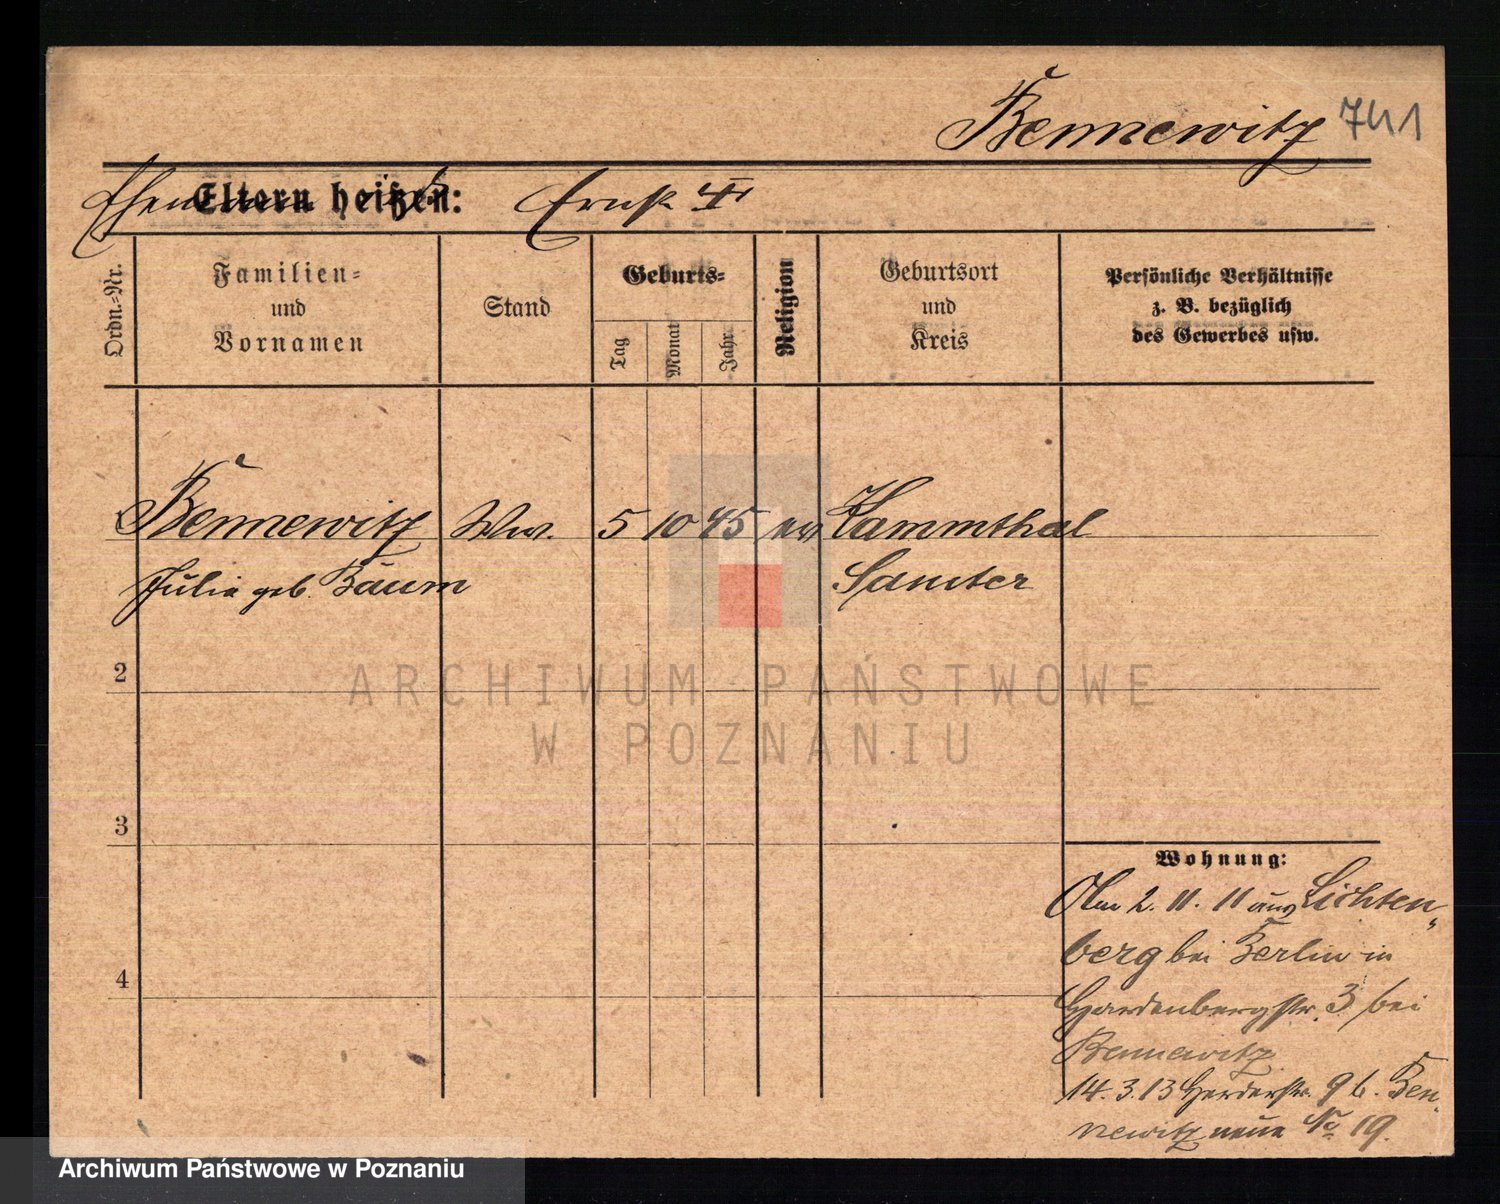 Bennewitz 741
Eltern heißen: Ernst
Ordn.-Nr.
Familien-
und
Vornamen
Stand
Geburts-
Tag
Monat
Jahr
Religion
Geburtsort
und
Kreis
Persönliche Verhältnisse
z. B. bezüglich
des Gewerbes usw.
Bennewitz Ww. 5 10 45 ev Kammthal
Julie geb. Baum Samter
2
3
4
Wohnung:
Am 2. 11. 11 aus Lichten-
berg bei Berlin in
Hardenbergstr. 3 bei
Bennewitz
14.3.13 Herderstr. 9 b. Ben-
newitz neue No 19.
ARCHIWUM PAŃSTWOWE
W POZNANIU
Archiwum Państwowe w Poznaniu